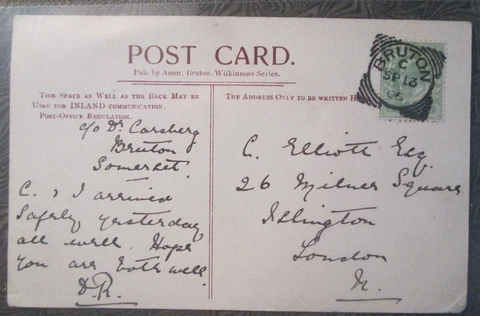 POST CARD.
Pub. by Amor, Bruton. Wilkinsons Series.
THIS SPACE AS WELL AS THE BACK MAY BE
USED FOR INLAND COMMUNICATION.
POST-OFFICE REGULATION.
c/o Dr. Carsberg
Bruton
Somerset.
C. & I arrived
safely yesterday
all well. Hope
you are both well.
D.R.
THE ADDRESS ONLY TO BE WRITTEN
BRUTON
C
SP 12
06
C. Elliott Esq.
26 Milner Square
Islington
London
N.